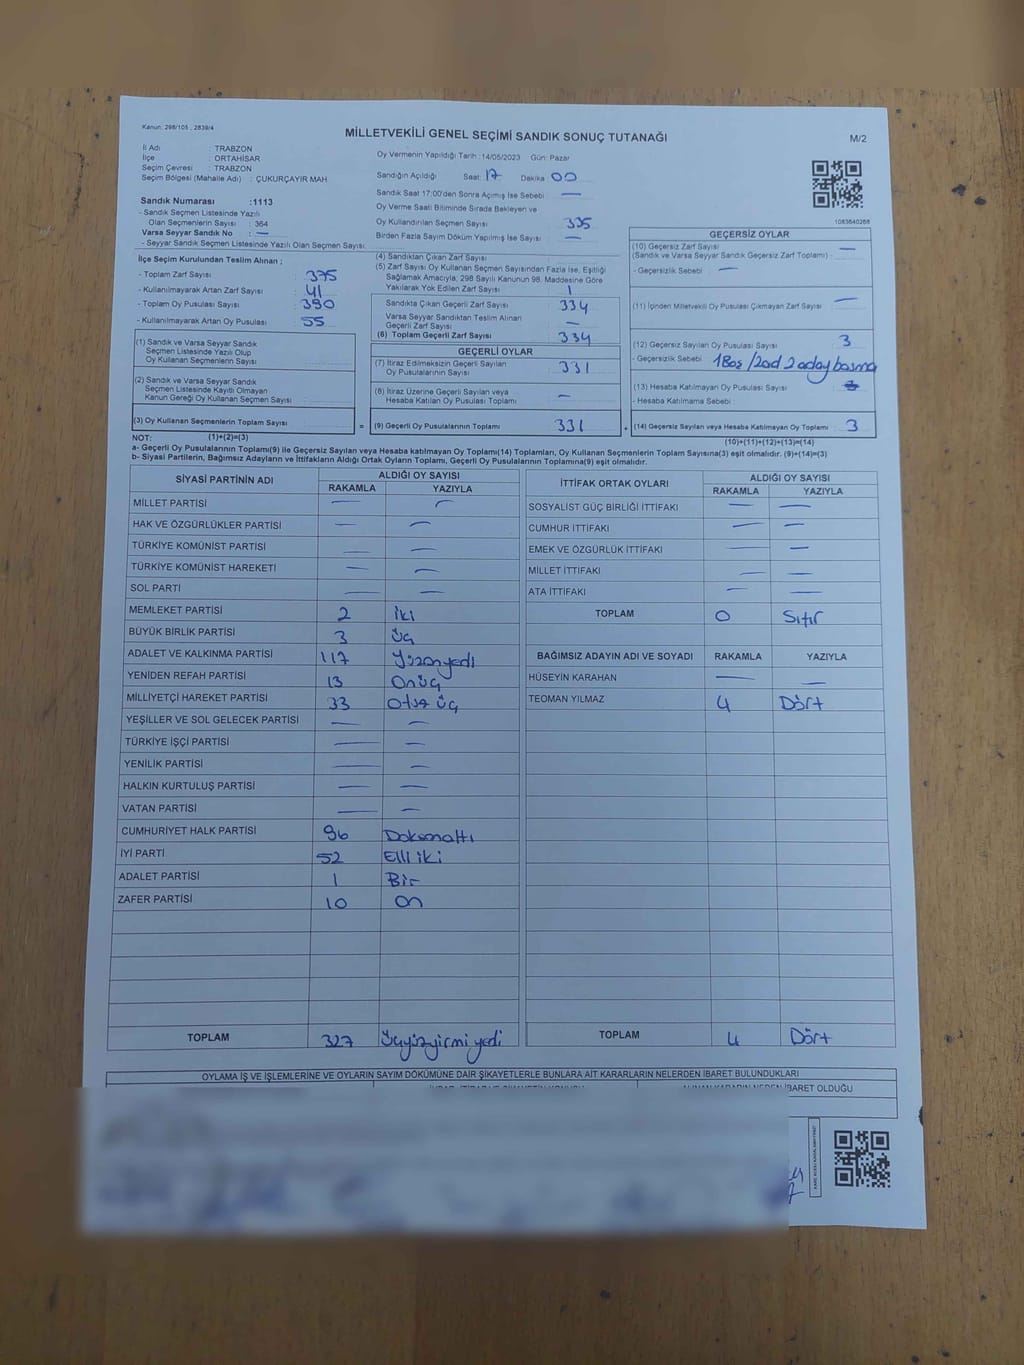 Kanun: 298/105 , 2839/4
MİLLETVEKİLİ GENEL SEÇİMİ SANDIK SONUÇ TUTANAĞI
M/2
İl Adı : TRABZON
İlçe : ORTAHİSAR
Seçim Çevresi : TRABZON
Seçim Bölgesi (Mahalle Adı) : ÇUKURÇAYIR MAH.
Sandık Numarası :1113
- Sandık Seçmen Listesinde Yazılı
Olan Seçmenlerin Sayısı : 364
Varsa Seyyar Sandık No : —
- Seyyar Sandık Seçmen Listesinde Yazılı Olan Seçmen Sayısı:
Oy Vermenin Yapıldığı Tarih :14/05/2023 Gün: Pazar
Sandığın Açıldığı Saat: 17 Dakika 00
Sandık Saat 17:00'den Sonra Açılmış İse Sebebi : —
Oy Verme Saati Bitiminde Sırada Bekleyen ve
Oy Kullandırılan Seçmen Sayısı : 335
Birden Fazla Sayım Döküm Yapılmış İse Sayısı : —
1083640268
İlçe Seçim Kurulundan Teslim Alınan ;
- Toplam Zarf Sayısı : 375
- Kullanılmayarak Artan Zarf Sayısı : 41
- Toplam Oy Pusulası Sayısı : 390
- Kullanılmayarak Artan Oy Pusulası : 55
(1) Sandık ve Varsa Seyyar Sandık
Seçmen Listesinde Yazılı Olup
Oy Kullanan Seçmenlerin Sayısı :
(2) Sandık ve Varsa Seyyar Sandık
Seçmen Listesinde Kayıtlı Olmayan
Kanun Gereği Oy Kullanan Seçmen Sayısı :
(3) Oy Kullanan Seçmenlerin Toplam Sayısı :
(1)+(2)=(3)
=
(4) Sandıktan Çıkan Zarf Sayısı :
(5) Zarf Sayısı Oy Kullanan Seçmen Sayısından Fazla İse, Eşitliği
Sağlamak Amacıyla; 298 Sayılı Kanunun 98. Maddesine Göre
Yakılarak Yok Edilen Zarf Sayısı : 1
Sandıkta Çıkan Geçerli Zarf Sayısı : 334
Varsa Seyyar Sandıktan Teslim Alınan
Geçerli Zarf Sayısı : —
(6) Toplam Geçerli Zarf Sayısı : 334
GEÇERLİ OYLAR
(7) İtiraz Edilmeksizin Geçerli Sayılan
Oy Pusulalarının Sayısı : 331
(8) İtiraz Üzerine Geçerli Sayılan veya
Hesaba Katılan Oy Pusulası Toplamı : —
(9) Geçerli Oy Pusulalarının Toplamı : 331
+
GEÇERSİZ OYLAR
(10) Geçersiz Zarf Sayısı : —
(Sandık ve Varsa Seyyar Sandık Geçersiz Zarf Toplamı) :
- Geçersizlik Sebebi : —
(11) İçinden Milletvekili Oy Pusulası Çıkmayan Zarf Sayısı : —
(12) Geçersiz Sayılan Oy Pusulası Sayısı : 3
- Geçersizlik Sebebi : 1 Boş / 2ad 2 aday basma
(13) Hesaba Katılmayan Oy Pusulası Sayısı :
- Hesaba Katılmama Sebebi :
(14) Geçersiz Sayılan veya Hesaba Katılmayan Oy Toplamı : 3
(10)+(11)+(12)+(13)=(14)
NOT:
a- Geçerli Oy Pusulalarının Toplamı(9) ile Geçersiz Sayılan veya Hesaba Katılmayan Oy Toplamı(14) Toplamları, Oy Kullanan Seçmenlerin Toplam Sayısına(3) eşit olmalıdır. (9)+(14)=(3)
b- Siyasi Partilerin, Bağımsız Adayların ve İttifakların Aldığı Oyların Toplamı, Geçerli Oy Pusulalarının Toplamına(9) eşit olmalıdır.
SİYASİ PARTİNİN ADI ALDIĞI OY SAYISI
RAKAMLA YAZIYLA
MİLLET PARTİSİ — —
HAK VE ÖZGÜRLÜKLER PARTİSİ — —
TÜRKİYE KOMÜNİST PARTİSİ — —
TÜRKİYE KOMÜNİST HAREKETİ — —
SOL PARTİ — —
MEMLEKET PARTİSİ 2 iki
BÜYÜK BİRLİK PARTİSİ 3 üç
ADALET VE KALKINMA PARTİSİ 117 Yüzonyedi
YENİDEN REFAH PARTİSİ 13 Onüç
MİLLİYETÇİ HAREKET PARTİSİ 33 Otuz üç
YEŞİLLER VE SOL GELECEK PARTİSİ — —
TÜRKİYE İŞÇİ PARTİSİ — —
YENİLİK PARTİSİ — —
HALKIN KURTULUŞ PARTİSİ — —
VATAN PARTİSİ — —
CUMHURİYET HALK PARTİSİ 96 Doksanaltı
İYİ PARTİ 52 Elli iki
ADALET PARTİSİ 1 Bir
ZAFER PARTİSİ 10 On
TOPLAM 327 Üçyüzyirmi yedi
İTTİFAK ORTAK OYLARI ALDIĞI OY SAYISI
RAKAMLA YAZIYLA
SOSYALİST GÜÇ BİRLİĞİ İTTİFAKI — —
CUMHUR İTTİFAKI — —
EMEK VE ÖZGÜRLÜK İTTİFAKI — —
MİLLET İTTİFAKI — —
ATA İTTİFAKI — —
TOPLAM 0 Sıfır
BAĞIMSIZ ADAYIN ADI VE SOYADI RAKAMLA YAZIYLA
HÜSEYİN KARAHAN — —
TEOMAN YILMAZ 4 Dört
TOPLAM 4 Dört
OYLAMA İŞ VE İŞLEMLERİNE VE OYLARIN SAYIM DÖKÜMÜNE DAİR ŞİKAYETLERLE BUNLARA AİT KARARLARIN NELERDEN İBARET BULUNDUKLARI
ALINAN KARARIN NEDEN İBARET OLDUĞU